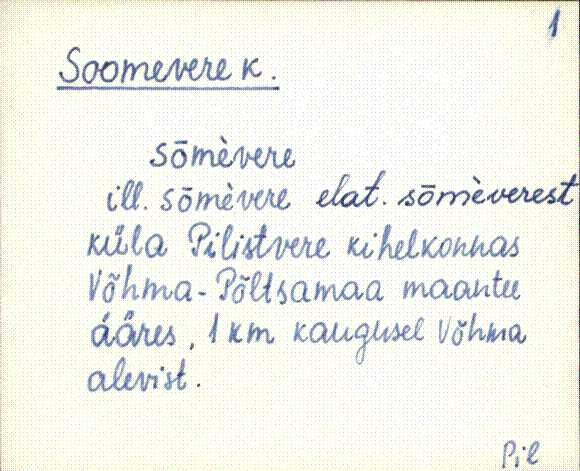 1
Soomevere k.
sōmèvere
ill. sōmèvere elat. sōmèverest
küla Pilistvere kihelkonnas
Võhma-Põltsamaa maantee
ääres, 1 km kaugusel Võhma
alevist.
Pil